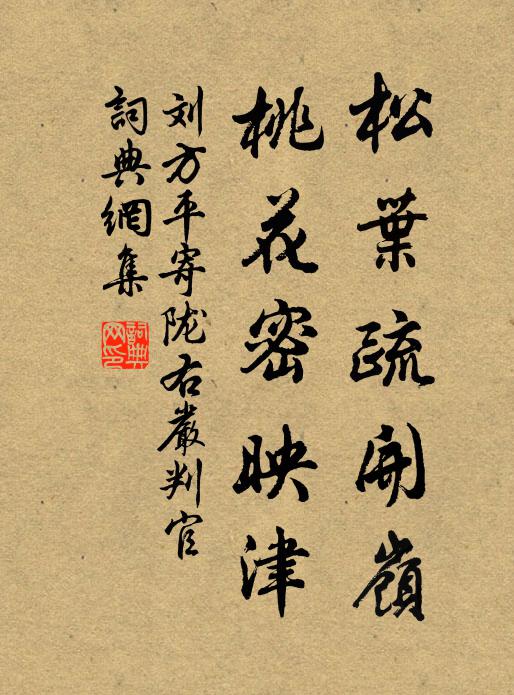 松葉疏開嶺
桃花密映津
刘方平寄陇右嚴判官
詞典網集
詞典網印